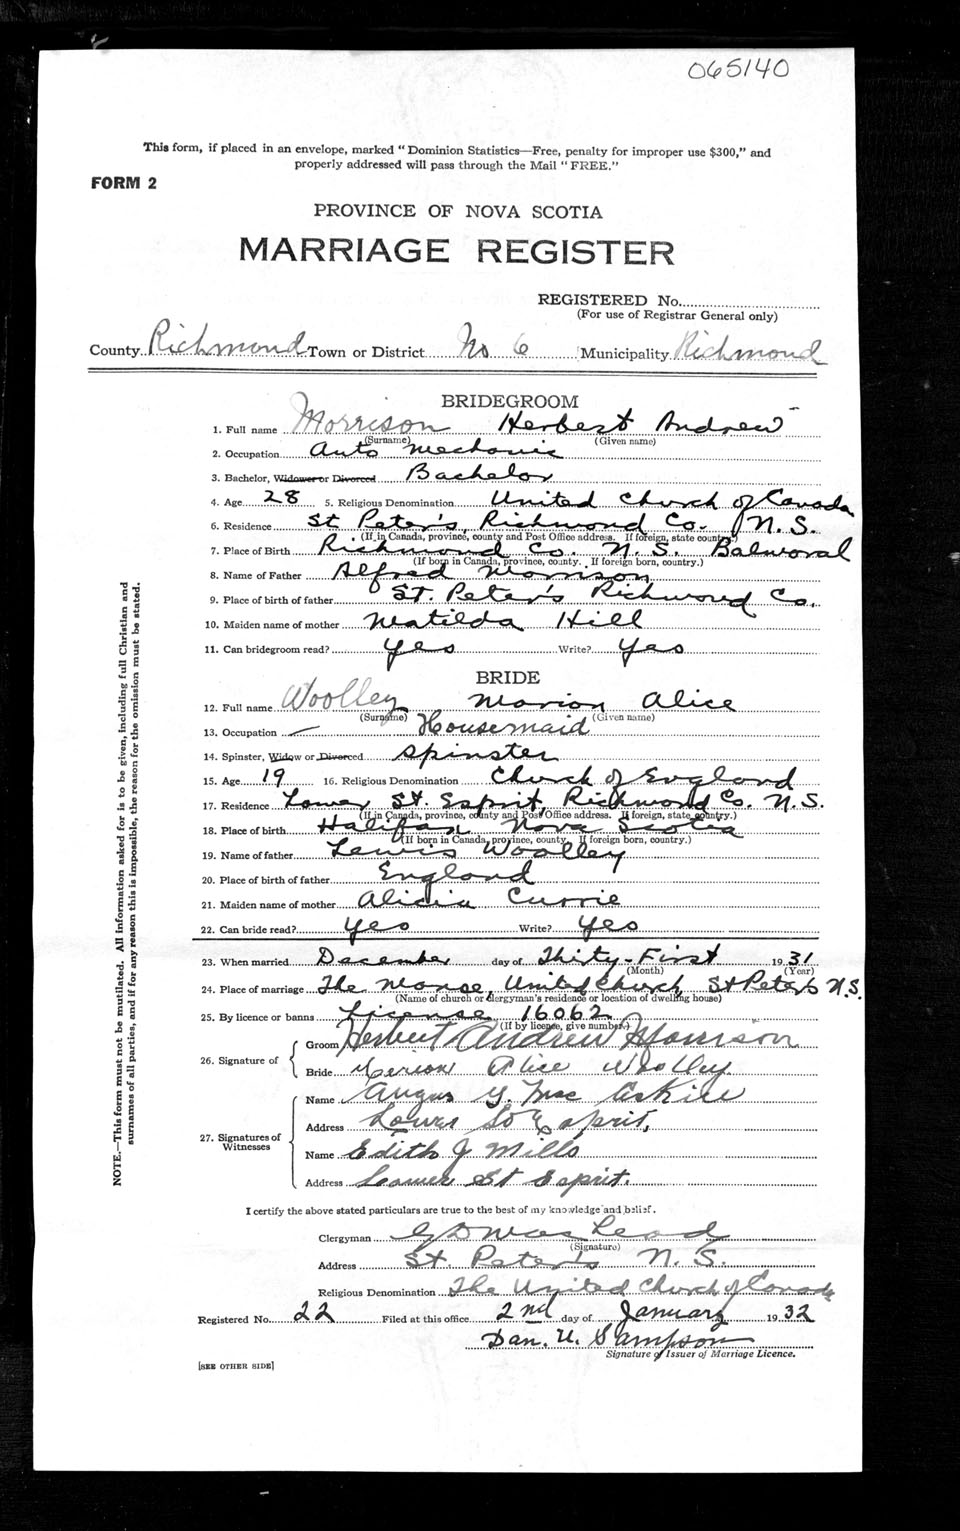 065140
This form, if placed in an envelope, marked "Dominion Statistics—Free, penalty for improper use $300," and
properly addressed will pass through the Mail "FREE."
FORM 2
PROVINCE OF NOVA SCOTIA
MARRIAGE REGISTER
REGISTERED No.
(For use of Registrar General only)
County Richmond Town or District No 6 Municipality Richmond
BRIDEGROOM
1. Full name Morrison Herbert Andrew
(Surname) (Given name)
2. Occupation Auto Mechanic
3. Bachelor, Widower or Divorced Bachelor
4. Age 28 5. Religious Denomination United Church of Canada
6. Residence St Peter's, Richmond Co. N.S.
(If in Canada, province, county and Post Office address. If foreign, state country.)
7. Place of Birth Richmond Co. N.S. Balmoral
(If born in Canada, province, county. If foreign born, country.)
8. Name of Father Alfred Morrison
9. Place of birth of father St. Peter's Richmond Co.
10. Maiden name of mother Matilda Hill
11. Can bridegroom read? Yes Write? Yes
BRIDE
12. Full name Woolley Marion Alice
(Surname) (Given name)
13. Occupation — Housemaid
14. Spinster, Widow or Divorced Spinster
15. Age 19 16. Religious Denomination Church of England
17. Residence Lower St. Esprit, Richmond Co. N.S.
(If in Canada, province, county and Post Office address. If foreign, state country.)
18. Place of birth Halifax Nova Scotia
(If born in Canada, province, county. If foreign born, country.)
19. Name of father Lewis Woolley
20. Place of birth of father England
21. Maiden name of mother Alicia Currie
22. Can bride read? Yes Write? Yes
23. When married December day of Thirty-First 1931
(Month) (Year)
24. Place of marriage The Manse, United Church, St Peter's N.S.
(Name of church or clergyman's residence or location of dwelling house)
25. By licence or banns License 16062
(If by licence, give number.)
26. Signature of
Groom Herbert Andrew Morrison
Bride Marion Alice Woolley
27. Signatures of Witnesses
Name Angus Y. MacAskill
Address Lower St Esprit,
Name Edith J Mills
Address Lower St Esprit.
I certify the above stated particulars are true to the best of my knowledge and belief.
Clergyman MacLeod
(Signature)
Address St. Peter's N.S.
Religious Denomination The United Church of Canada
Registered No. 22 Filed at this office 2nd day of January 1932
Dan. U. Sampson
Signature of Issuer of Marriage Licence.
[SEE OTHER SIDE]
NOTE.—This form must not be mutilated. All Information asked for is to be given, including full Christian and
surnames of all parties, and if for any reason this is impossible, the reason for the omission must be stated.